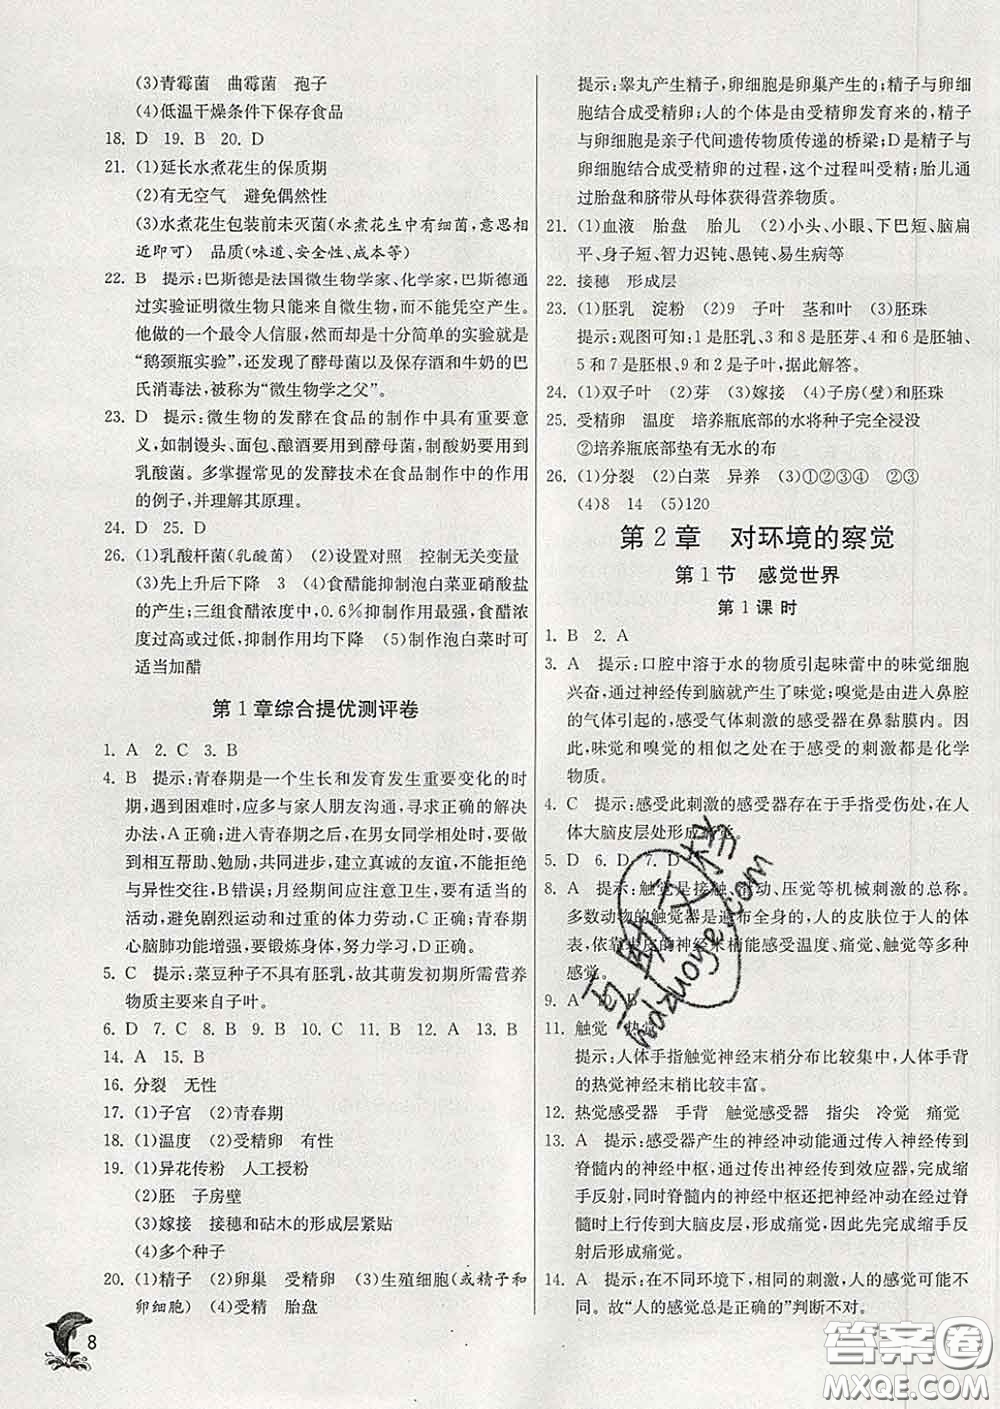 (3)青霉菌　曲霉菌　孢子
(4)低温干燥条件下保存食品
18. D　19. B　20. D
21. (1)延长水煮花生的保质期
(2)有无空气　避免偶然性
(3)水煮花生包装前未灭菌(水煮花生中有细菌,意思相
近即可)　品质(味道、安全性、成本等)
22. B　提示:巴斯德是法国微生物学家、化学家,巴斯德通
过实验证明微生物只能来自微生物,而不能凭空产生。
他做的一个最令人信服,然而却是十分简单的实验就是
“鹅颈瓶实验”,还发现了酵母菌以及保存酒和牛奶的巴
氏消毒法,被称为“微生物学之父”。
23. D　提示:微生物的发酵在食品的制作中具有重要意
义,如制馒头、面包、酿酒要用到酵母菌;制酸奶要用到
乳酸菌。多掌握常见的发酵技术在食品制作中的作用
的例子,并理解其原理。
24. D　25. D
26. (1)乳酸杆菌(乳酸菌)　(2)设置对照　控制无关变量
(3)先上升后下降　3　(4)食醋能抑制泡白菜亚硝酸盐
的产生;三组食醋浓度中,0.6%抑制作用最强,食醋浓
度过高或过低,抑制作用均下降　(5)制作泡白菜时可
适当加醋
第1章综合提优测评卷
1. A　2. C　3. B
4. B　提示:青春期是一个生长和发育发生重要变化的时
期,遇到困难时,应多与家人朋友沟通,寻求正确的解决
办法,A正确;进入青春期之后,在男女同学相处中,要做
到相互帮助、勉励,共同进步,建立真诚的友谊,不能拒绝
与异性交往,B错误;月经期间应注意卫生,要有适当的
活动,避免剧烈运动和过重的体力劳动,C正确;青春期
心脑肺功能增强,要锻炼身体、努力学习,D正确。
5. C　提示:菜豆种子不具有胚乳,故其萌发初期所需营养
物质主要来自子叶。
6. D　7. C　8. B　9. B　10. C　11. A　12. A　13. B
14. A　15. B
16. 分裂　无性
17. (1)子宫　(2)青春期
18. (1)温度　(2)受精卵　有性
19. (1)异花传粉　人工授粉
(2)胚　子房壁
(3)嫁接　接穗和砧木的形成层紧贴
(4)多个种子
20. (1)精子　(2)卵巢　受精卵　(3)生殖细胞(或精子和
卵细胞)　(4)受精　胎盘
8
提示:睾丸产生精子,卵细胞是卵巢产生的;精子与卵细
胞结合成受精卵;人的个体是由受精卵发育来的,精子
与卵细胞是亲子代间遗传物质传递的桥梁;D是精子与
卵细胞结合成受精卵的过程,这个过程叫受精;胎儿通
过胎盘和脐带从母体获得营养物质。
21. (1)血液　胎盘　胎儿　(2)小头、小眼、下巴短、脑扁
平、身子短、智力迟钝、愚钝、易生病等
22. 接穗　形成层
23. (1)胚乳　淀粉　(2)9　子叶　茎和叶　(3)胚珠
提示:观图可知:1是胚乳、3和8是胚芽、4和6是胚轴、
5和7是胚根、9和2是子叶,据此解答。
24. (1)双子叶　(2)芽　(3)嫁接　(4)子房(壁)和胚珠
25. 受精卵　温度　培养瓶底部的水将种子完全浸没
②培养瓶底部垫有无水的布
26. (1)分裂　(2)白菜　异养　(3)①②③④　②③
(4)8　14　(5)120
第2章　对环境的察觉
第1节　感觉世界
第1课时
1. B　2. A
3. A　提示:口腔中溶于水的物质引起味蕾中的味觉细胞
兴奋,通过神经传到脑就产生了味觉;嗅觉是由进入鼻腔
的气体引起的,感受气体刺激的感受器在鼻黏膜内。因
此,味觉和嗅觉的相似之处在于感受的刺激都是化学
物质。
4. C　提示:感受此刺激的感受器存在于手指受伤处,在人
体大脑皮层处形成痛觉。
5. D　6. D　7. D
8. A　提示:触觉是接触、滑动、压觉等机械刺激的总称。
多数动物的触觉器是遍布全身的,人的皮肤位于人的体
表,依靠表皮的神经末梢能感受温度、痛觉、触觉等多种
感觉。
9. A　10. B
11. 触觉　热觉
提示:人体手指触觉神经末梢分布比较集中,人体手背
的热觉神经末梢比较丰富。
12. 热觉感受器　手背　触觉感受器　指尖　冷觉　痛觉
13. A　提示:感受器产生的神经冲动能通过传入神经传到
脊髓内的神经中枢,通过传出神经传到效应器,完成缩
手反射,同时脊髓内的神经中枢还把神经冲动在经过脊
髓时上行传导到大脑皮层,形成痛觉。因此先完成缩手反
射后形成痛觉。
14. A　提示:在不同环境下,相同的刺激,人的感觉可能不
同。故“人的感觉总是正确的”判断不对。
hdzuoye.com
答案圈
MXQE.COM